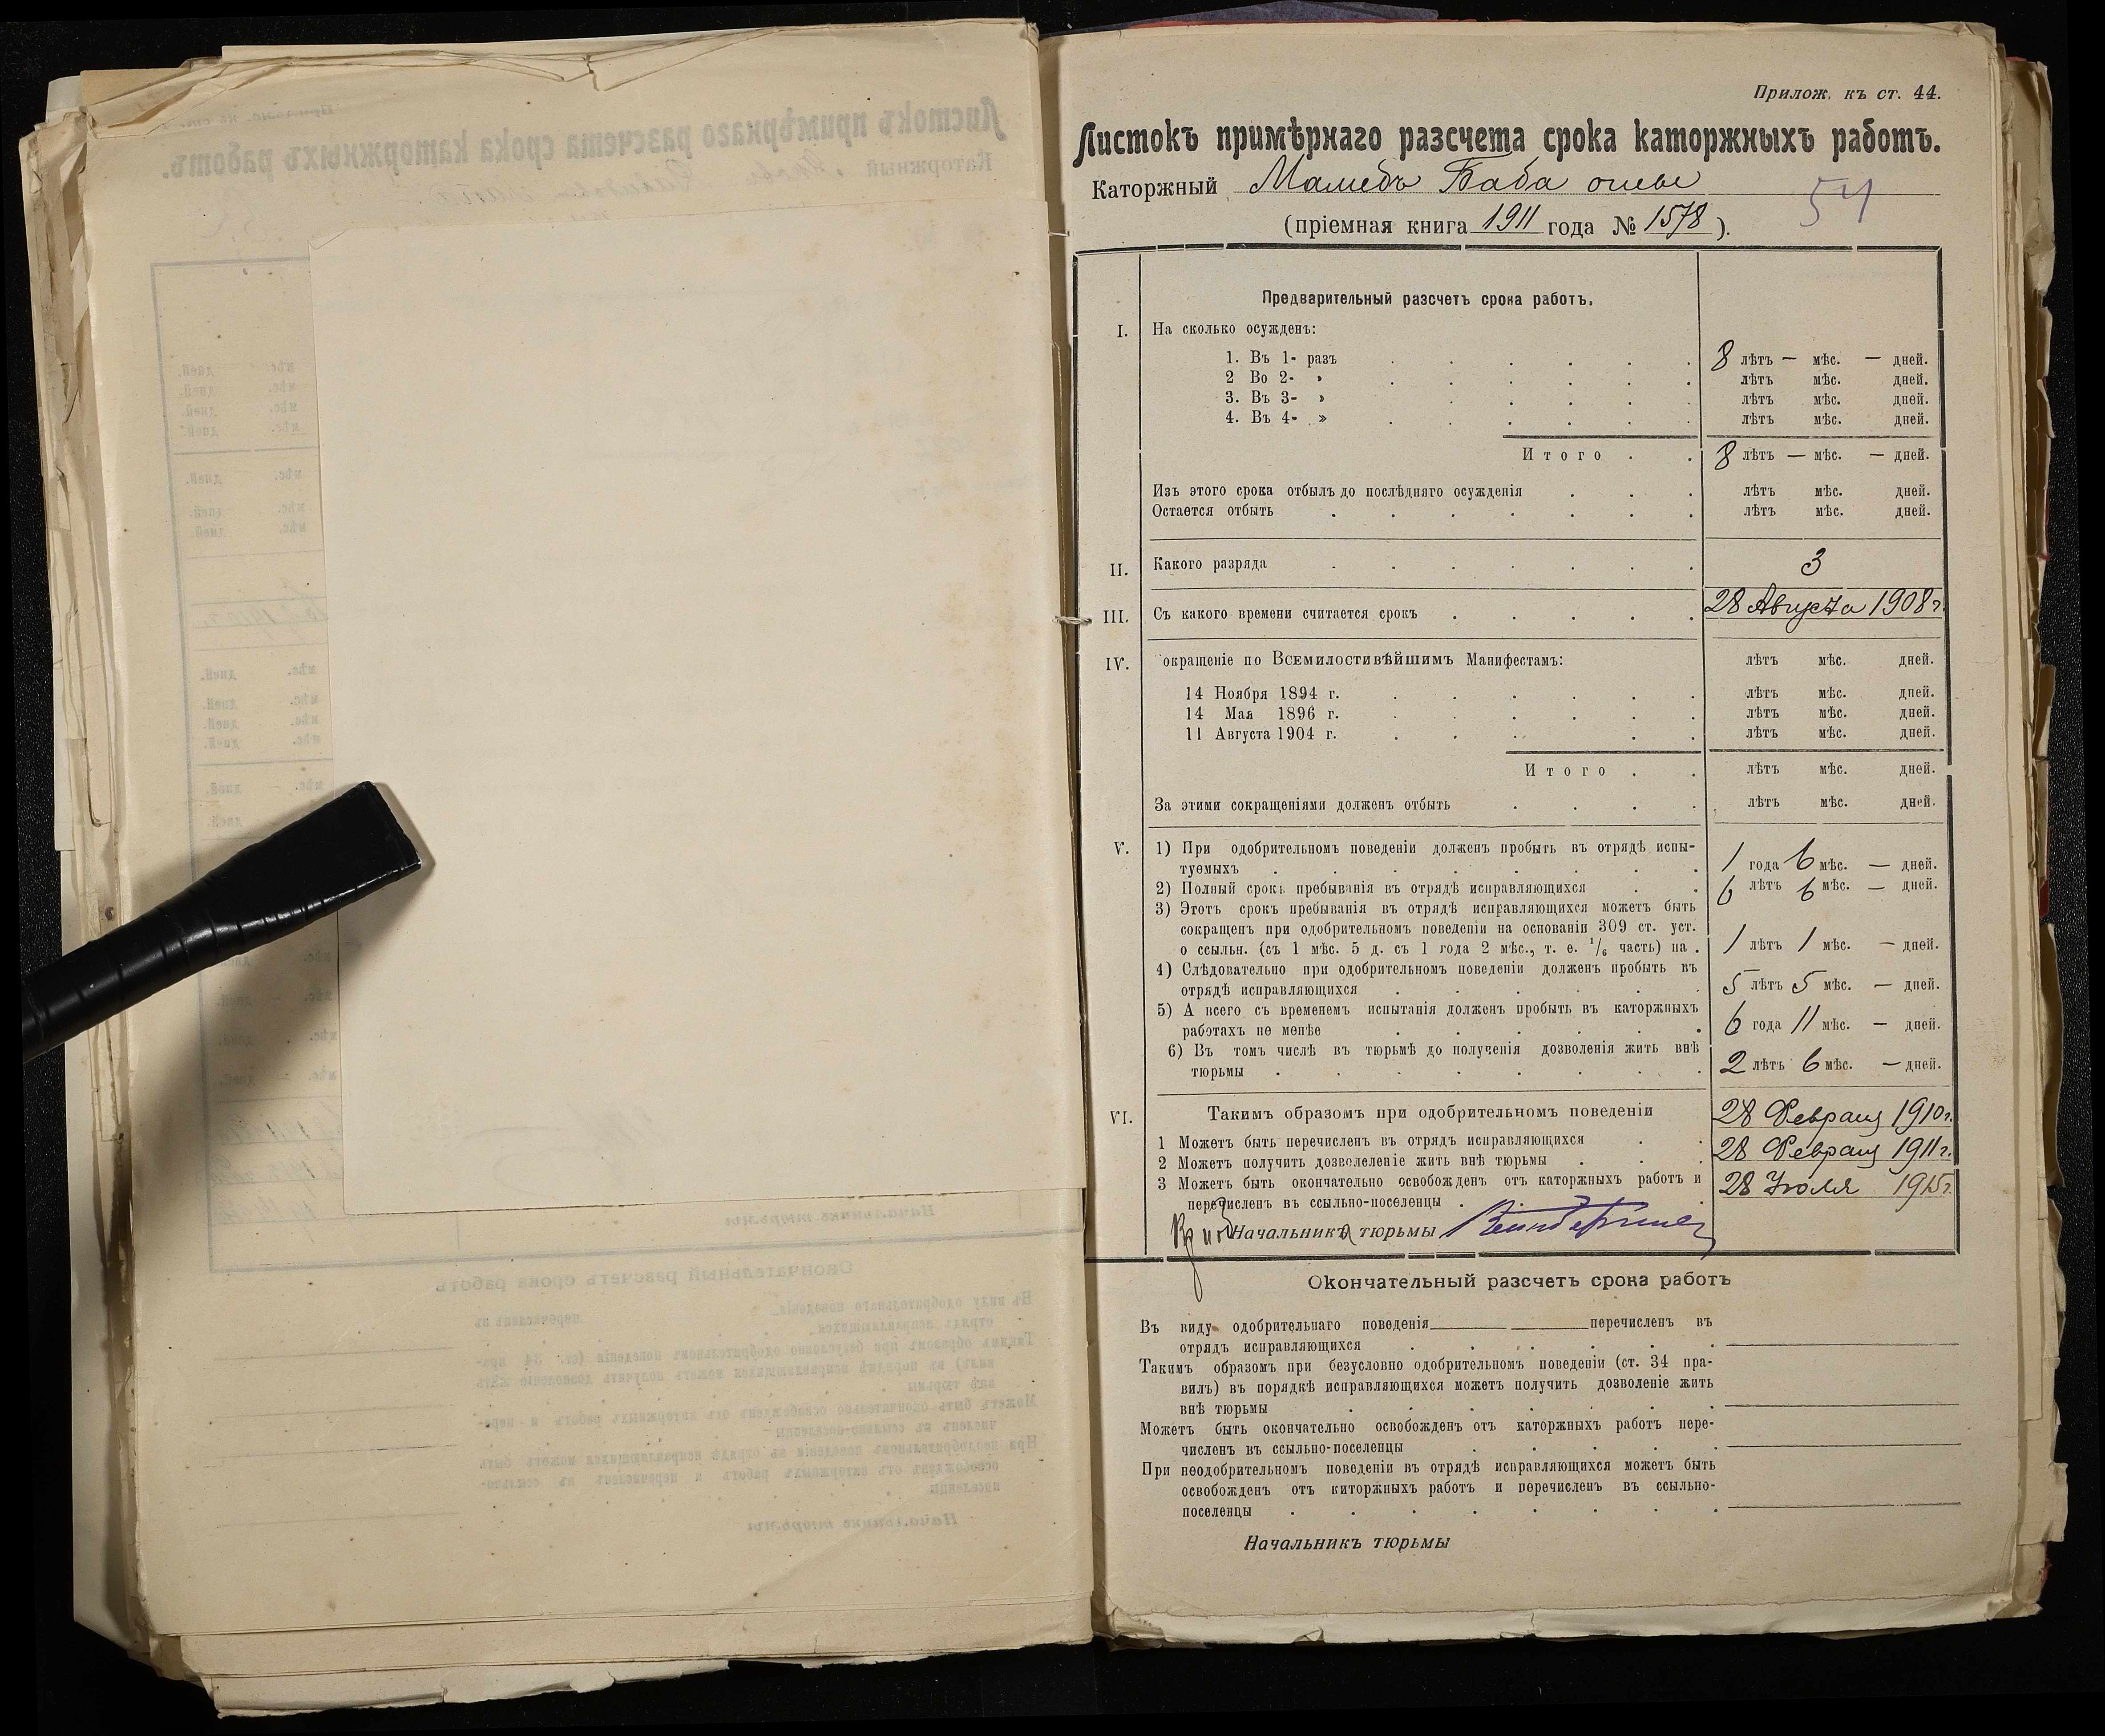 Прилож. къ ст. 44.
Листокъ примѣрнаго разсчета срока каторжныхъ работъ.
Каторжный Мамедъ Баба оглы
54
(пріемная книга 1911 года № 1578).
Предварительный разсчетъ срока работъ.
I. На сколько осужденъ:
1. Въ 1- разъ 8 лѣтъ — мѣс. — дней.
2 Во 2- » лѣтъ мѣс. дней.
3. Въ 3- » лѣтъ мѣс. дней.
4. Въ 4- » лѣтъ мѣс. дней.
Итого 8 лѣтъ — мѣс. — дней.
Изъ этого срока отбылъ до послѣдняго осужденія лѣтъ мѣс. дней.
Остается отбыть лѣтъ мѣс. дней.
II. Какого разряда 3
III. Съ какого времени считается срокъ 28 Августа 1908 г.
IV. окращеніе по Всемилостивѣйшимъ Манифестамъ: лѣтъ мѣс. дней.
14 Ноября 1894 г. лѣтъ мѣс. дней.
14 Мая 1896 г. лѣтъ мѣс. дней.
11 Августа 1904 г. лѣтъ мѣс. дней.
Итого лѣтъ мѣс. дней.
За этими сокращеніями долженъ отбыть лѣтъ мѣс. дней.
V. 1) При одобрительномъ поведеніи долженъ пробыть въ отрядѣ испы-
туемыхъ 1 года 6 мѣс. — дней.
2) Полный срокъ пребыванія въ отрядѣ исправляющихся 6 лѣтъ 6 мѣс. — дней.
3) Этотъ срокъ пребыванія въ отрядѣ исправляющихся можетъ быть
сокращенъ при одобрительномъ поведеніи на основаніи 309 ст. уст.
о ссыльн. (съ 1 мѣс. 5 д. съ 1 года 2 мѣс., т. е. 1/6 часть) на 1 лѣтъ 1 мѣс. — дней.
4) Слѣдовательно при одобрительномъ поведеніи долженъ пробыть въ
отрядѣ исправляющихся 5 лѣтъ 5 мѣс. — дней.
5) А всего съ временемъ испытанія долженъ пробыть въ каторжныхъ
работахъ не менѣе 6 года 11 мѣс. — дней.
6) Въ томъ числѣ въ тюрьмѣ до полученія дозволенія жить внѣ
тюрьмы 2 лѣтъ 6 мѣс. — дней.
VI. Такимъ образомъ при одобрительномъ поведеніи
1 Можетъ быть перечисленъ въ отрядъ исправляющихся 28 Февраля 1910 г.
2 Можетъ получить дозволеленіе жить внѣ тюрьмы 28 Февраля 1911 г.
3 Можетъ быть окончательно освобожденъ отъ каторжныхъ работъ и
перечисленъ въ ссыльно-поселенцы 28 Іюля 1915 г.
Начальника тюрьмы
Окончательный разсчетъ срока работъ
Въ виду одобрительнаго поведенія перечисленъ въ
отрядъ исправляющихся
Такимъ образомъ при безусловно одобрительномъ поведеніи (ст. 34 пра-
вилъ) въ порядкѣ исправляющихся можетъ получить дозволеніе жить
внѣ тюрьмы
Можетъ быть окончательно освобожденъ отъ каторжныхъ работъ пере-
численъ въ ссыльно-поселенцы
При неодобрительномъ поведеніи въ отрядѣ исправляющихся можетъ быть
освобожденъ отъ киторжныхъ работъ и перечисленъ въ ссыльно-
поселенцы
Начальникъ тюрьмы